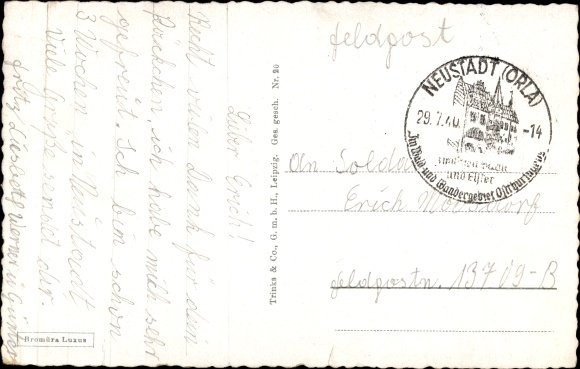 Lieber Erich!
Recht vielen Dank für dein
Päckchen, ich habe mich sehr
gefreut. Ich bin schon
3 Wochen in Neustadt
Viele Grüße sendet dir.
Fritz, Liesbeth, Werner u. Günter
Bromüra Luxus
Trinks & Co., G. m. b. H., Leipzig. Ges. gesch. Nr. 20
Feldpost
NEUSTADT (ORLA)
29.7.40.
-14
und Elster
Im Wald- und Wandergebiet Ostthüringens
An Soldat
Erich
Feldpostn. 13709-B